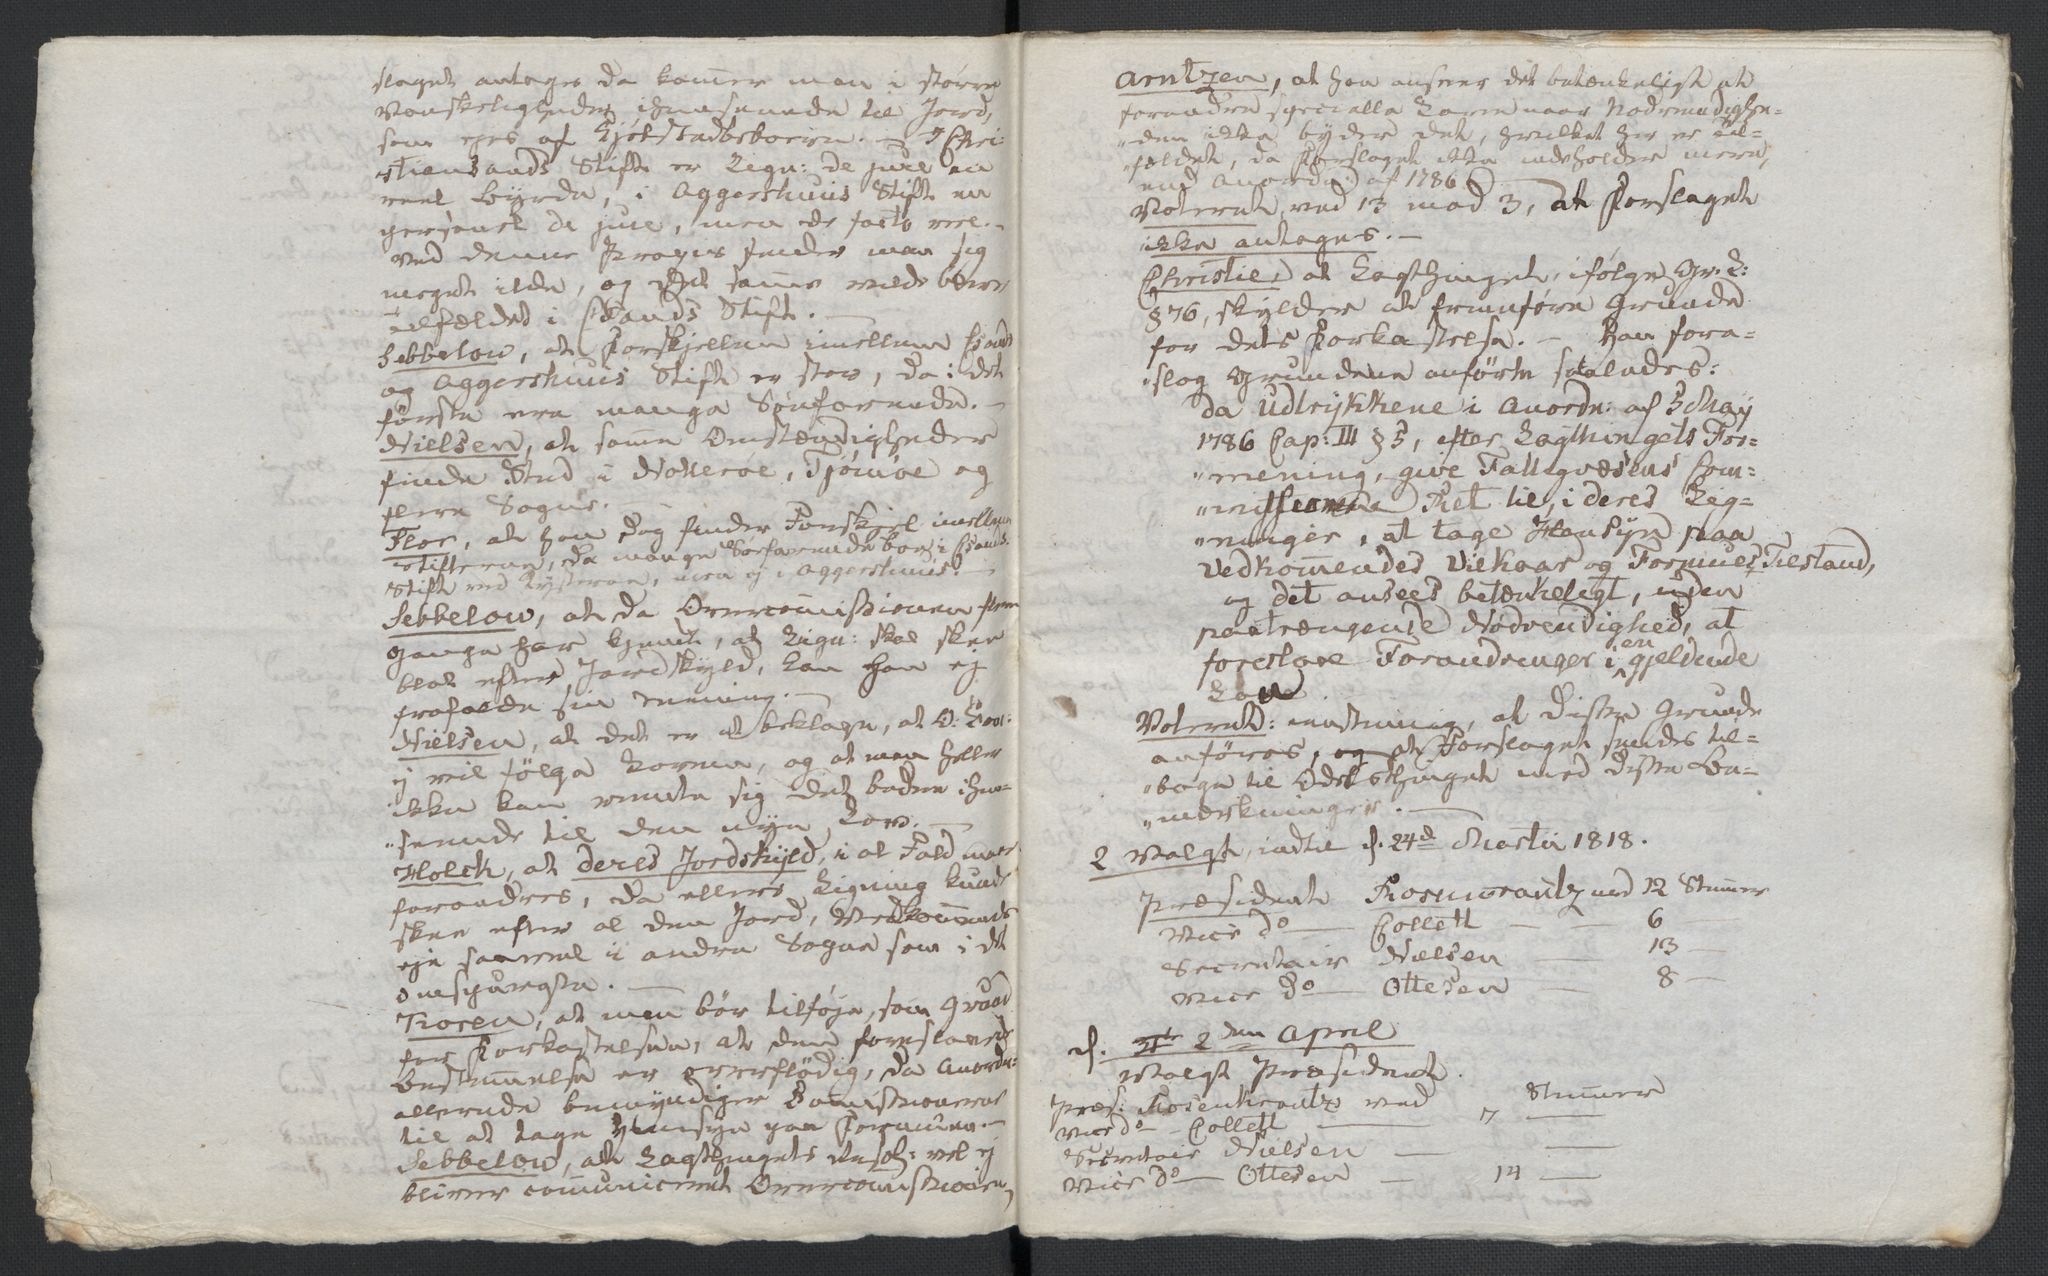 slaget antages da kommer man i større
Vanskeligheder ihenseende til Jord,
som eies af Kjøbstadsboerne. — I Chri-
stiansands Stift er Lign: de jure en
reel Byrde, i Aggershuus Stift en
personel de jure, men de facto reel. —
Ved denne Praxis finder man sig
meget ilde, og det samme vilde være
Tilfældet i Chsands Stift. —
Sebbelow, at Forskjellen imellem Chsands
og Aggershuus Stift er stor, da i det
første ere mange Søefarende. —
Nielsen, at samme Omstændigheder
finde Sted i Nøtterøe, Tjømøe og
flere Sogne.
Flor, at han dog finder Forskjel imellem
Stifterne, da mange Søefarende boe i Chsands
Stift ved Kysterne, men ej i Aggershuus. —
Sebbelow, at da Overcommissionen flere
Gange har kjendt, at Lign: skal skee
blot efter Jordskyld, kan han ej
frafalde sin Mening. —
Nielsen, at det er at beklage, at O:
ej vil følge Loven, og at man heller
ikke kan vente sig det bedre ihen-
"seende til den nye Lov. —
Holck, at deres Jordskyld, i al Fald maae
forandres, da ellers Ligning kunde
skee efter al den Jord, Vedkommende
eje saavel i andre Sogne som i det
omspurgte. —
Rosen, at man bør tilføje, som Grund
for Forkastelsen, at den foreslaaede
Bestemmelse er overflødig, da Anordn:
allerede bemyndiger Commissionerne
til at tage Hensyn paa Formuen. —
Sebbelow, at Lagthingets Resol: vel ej
bliver communiceret Overcommissionen,
Arntzen, at han anseer det betænkeligt at
forandre specielle Love naar Nødvendighe-
"den ikke byder det, hvilket her er Til-
"fældet, da Forslaget ikke indeholder mere,
end Anordn: af 1786
Voteret, ved 13 mod 3, at Forslaget
ikke antages. —
Christie, at Lagthinget, ifølge Gr. L:
§ 76, skylder at fremføre Grunde
for dets Forkastelse. — Han fore-
"slog Grundene anførte saaledes:
da Udtrykkene i Anordn: af 3 May
1786 Cap: III § 5, efter Lagthingets For-
"mening, give Fattigvæsens Com-
"missionerne Ret til, i deres Lig-
"ninger, at tage Hensyn paa
Vedkommendes Vilkaar og Formues Tilstand,
og det ansees betænkeligt, uden
paatrængende Nødvendighed, at
foreslaae Forandringer i en gjeldende
Lov.
Voteret: eenstemmig, at disse Grunde
anføres, og at Forslaget sendes til-
"bage til Odelsthinget med disse Be-
"mærkninger. —
2 Valgt, indtil d. 24de Martii 1818.
Præsident Rosencrantz med 12 Stemmer
Vice do — Collett — — 6
Secretair Nielsen — 13 —
Vice do — Ottesen — 8 —
d. 2den April
Valgt Præsident.
Præs: Rosenkrantz med Stemmer
Vice do — Collett — 7 —
Secretair Nielsen — —
Vice do — Ottesen — 14 —